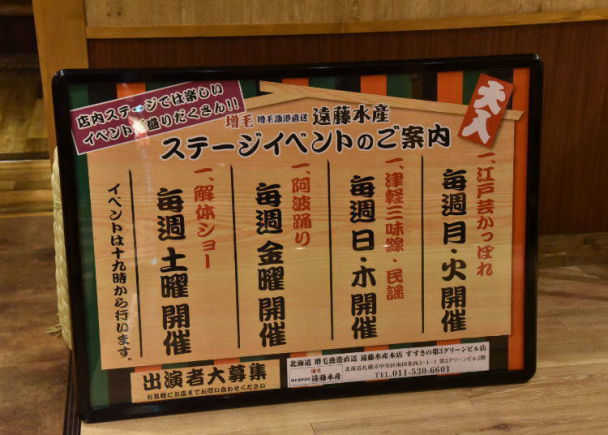 店内ステージでは楽しい
イベント盛りだくさん!!
大入
増毛 増毛漁港直送 遠藤水産
ステージイベントのご案内
一、江戸芸かっぽれ
毎週月・火開催
一、津軽三味線・民謡
毎週日・木開催
一、阿波踊り
毎週金曜開催
一、解体ショー
毎週土曜開催
イベントは十九時から行います。
出演者大募集
お気軽にお店までお問い合わせください
北海道 増毛漁港直送 遠藤水産本店 すすきの第3グリーンビル店
増毛
遠藤水産
TEL.011-530-6601